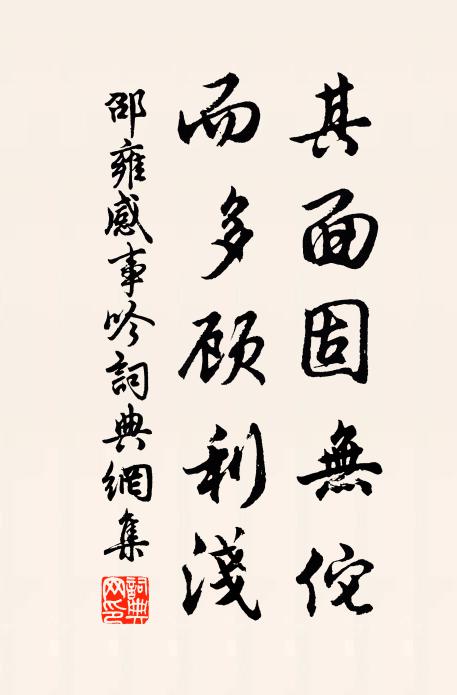 其面固無侘
而多顾利淺
邵雍感事吟詞典網集
詞典网印